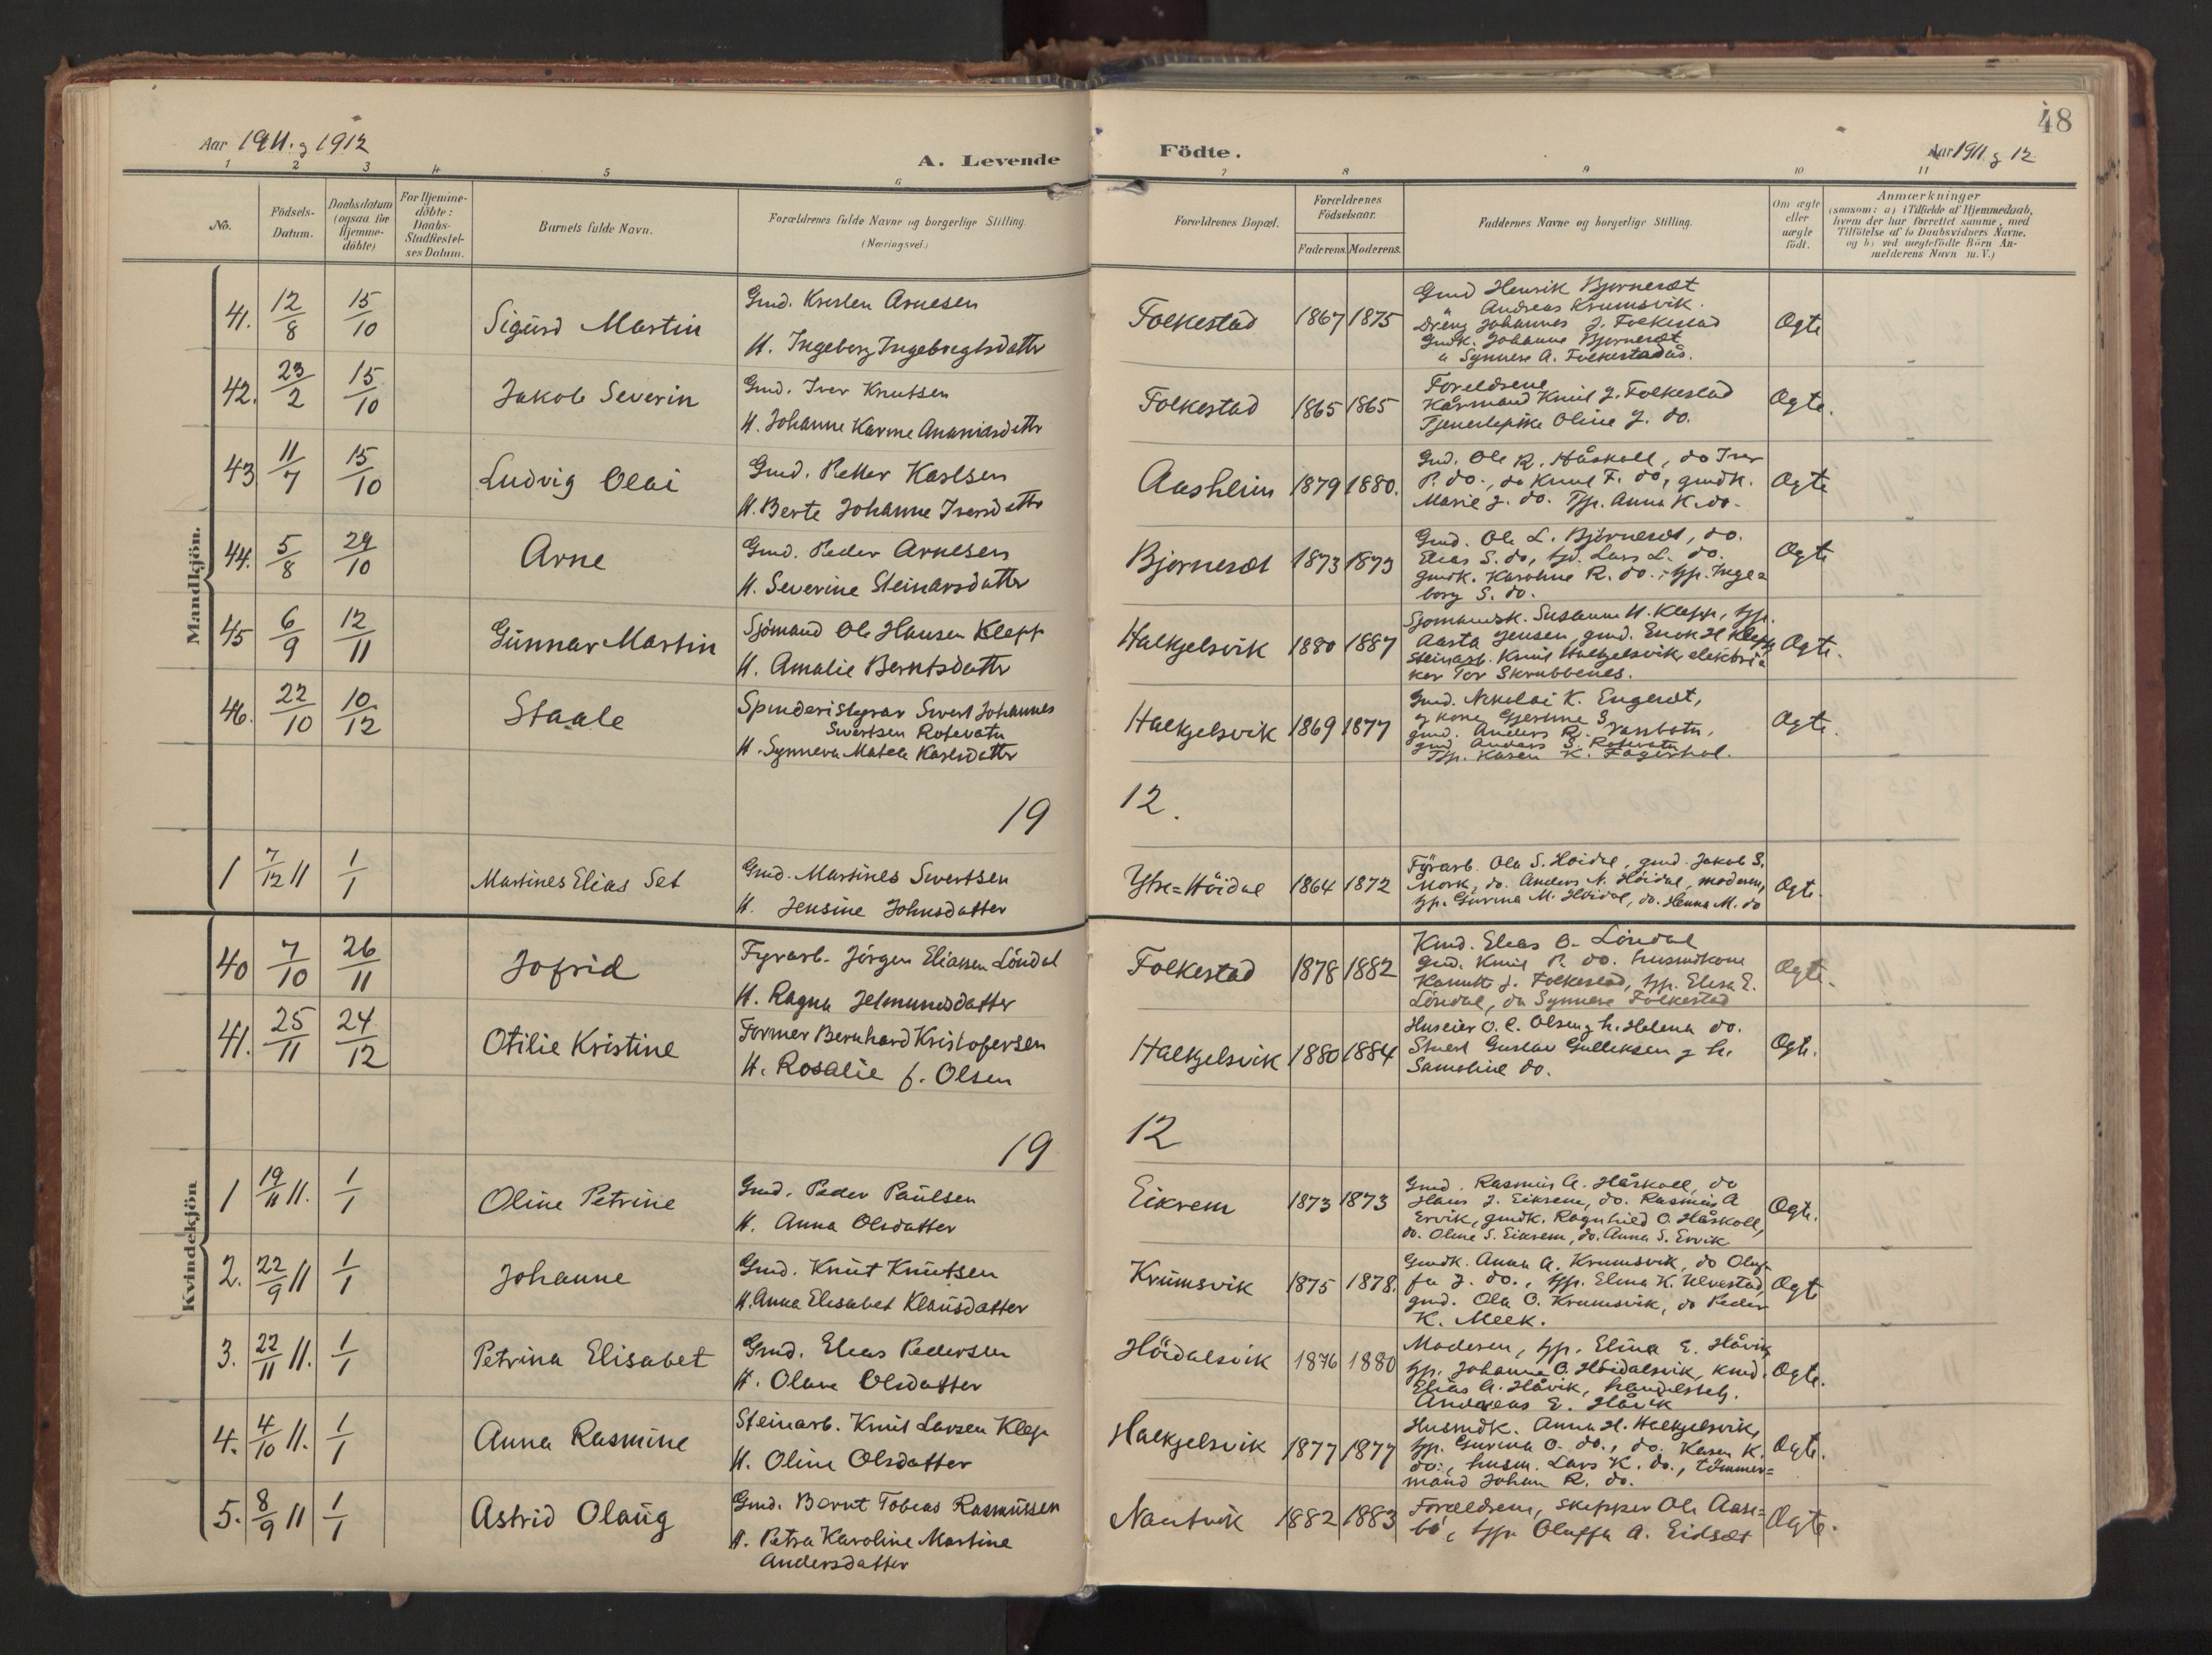 48
Aar 1911. g 1912
A. Levende Födte.
Aar 1911 g 12
1 2 3 4 5 6 7 8 9 10 11
No.
Födsels-
Datum.
Daabsdatum
(ogsaa for
Hjemme-
döbte)
For Hjemme-
döbte:
Daabs-
Stadfæstel-
ses Datum.
Barnets fulde Navn.
Forældrenes fulde Navne og borgerlige Stilling.
(Næringsvei.)
Forældrenes Bopæl.
Forældrenes
Födselsaar.
Faderens. Moderens.
Faddernes Navne og borgerlige Stilling.
Om ægte
eller
uægte
födt.
Anmærkninger
(saasom: a) i Tilfælde af Hjemmedaab,
hvem der har forrettet samme, med
Tilföielse af to Daabsvidners Navne,
og b) ved uægtefödte Börn An-
melderens Navn m. V.)
Mandkjön.
41. 12/8 15/10 Sigurd Martin
Gmd. Kristen Arnesen
H. Ingeborg Ingebregtsdattr
Folkestad 1867 1875
Gmd Henrik Bjørneset
" Andreas Krumsvik.
Dreng Johannes J. Folkestad
Gmdk. Johanne Bjørneset
" Synneve A. Folkestadås.
Ogte
42. 23/2 15/10 Jakob Severin
Gmd. Iver Knutsen
H. Johanne Karine Ananiasdattr
Folkestad 1865 1865
Foreldrene
Kårmand Knut J. Folkestad
Tjenestepike Oline J. do.
Ogte.
43 11/7 15/10 Ludvig Olai
Gmd. Petter Karlsen
H. Berte Johanne Iversdattr
Aasheim 1879 1880.
Gmd. Ole R. Håskoll, do Iver
P. do., do Knut F. do, gmdk.
Marie J. do. Tjp. Anna K. do.
Ogte
44. 5/8 29/10 Arne
Gmd. Peder Arnesen
H. Severine Steinarsdattr
Bjørneset 1873 1873
Gmd. Ole L. Bjørneset, do.
Elias S. do, tjd. Lars L. do.
gmdk. Karoline R. do., tjp. Inge=
borg S. do.
Ogte
45 6/9 12/11 Gunnar Martin
Sjömand Ole Hansen Klepp
H. Amalie Berntsdattr
Halkjelsvik 1880 1887
Sjomandsk. Susanna H. Klepp, tjp.
Aasta Jensen, gmd. Enok H Klepp
Steinarb. Knut Halkjelsvik, elektri=
ker Tor Skrubbenes.
Ogte.
46. 22/10 10/12 Staale
Spinderistyrar Sivert Johannes
Sivertsen Rotevatn
H. Synneva Matea Karlsdattr
Halkjelsvik 1869 1877
Gmd. Nikolai K. Engeset,
g kone Gjertine S.
gmd. Anders R. Vassbotn,
gmd Anders S. Rotevatn
Tjp. Karen K. Fagerhol.
Ogte.
19 12.
1 7/12 11 1/1 Martines Elias Set
Gmd. Martines Sivertsen
H. Jensine Johnsdatter
Ytre=Höidal 1864 1872
Fyrarb. Ola S. Höidal, gmd. Jakob S.
Mork, do. Anders N. Höidal, moderen,
tjp. Gurina M. Höidal, do. Hanna M. do
Ogte.
40 7/10 26/11 Jofrid
Fyrarb. Jörgen Eliassen Löndal
H. Ragna Jetmundsdatter
Folkestad 1878 1882
Kmd. Elias O. Löndal
Gmd. Knut P. do. husmdkone
J. Folkestad, tjp. Elisa E.
Löndal, do Synneve Folkestad
Ogte.
41. 25/11 24/12 Otilie Kristine
Former Bernhard Kristofersen
H. Rosalie f. Olsen
Halkjelsvik 1880 1884
Huseier O. C. Olsen g h. Helena do.
Stuert Gustav Gulleksen g h.
Samoline do.
Ogte.
19 12
Kvindekjön
1 19/11 11. 1/1 Oline Petrine
Gmd. Peder Paulsen
H. Anna Olsdatter
Eikrem 1873 1873
Gmd. Rasmus A. Håskoll, do
Hans J. Eikrem, do. Rasmus A
Ervik, gmdk. Ragnhild O. Håskoll,
do. Oline S. Eikrem, do. Anna S. Ervik
Ogte.
2. 22/9 11 1/1 Johanne
Gmd. Knut Knutsen
H. Anna Elisabet Klausdatter
Krumsvik 1875 1878.
Gmdk. Anna A. Krumsvik, do Oluf-
fa J. do., tjp. Elina K. Ulvestad,
gmd. Ola O. Krumsvik, do Peder
K. Meek.
Ogte
3. 22/11 11. 1/1 Petrina Elisabet
Gmd. Elias Pedersen
H. Olave Olsdatter
Höidalsvik 1876 1880
Moderen, tjp. Elina E. Håvik
tjp. Johanna O. Höidalsvik, kmd.
Elias A. Håvik, handelsbetj.
Andreas E. Håvik
Ogte.
4. 4/10 11. 1/1 Anna Rasmine
Steinarb. Knut Larsen Klepp
H. Oline Olsdatter
Halkjelsvik 1877 1877
Husmdk. Anna H. Halkjelsvik,
tjp. Gurina O. do., do. Karen K.
do., husm. Lars K. do., tömmer=
mand Johan R. do.
Ogte.
5. 8/9 11 1/1 Astrid Olaug
Gmd. Bernt Tobias Rasmussen
H. Petra Karoline Martine
Andersdatter
Nautvik 1882 1883
Foreldrene, skipper Ole Aase=
bö, tjp. Oluffa A. Eidset
Ogte.